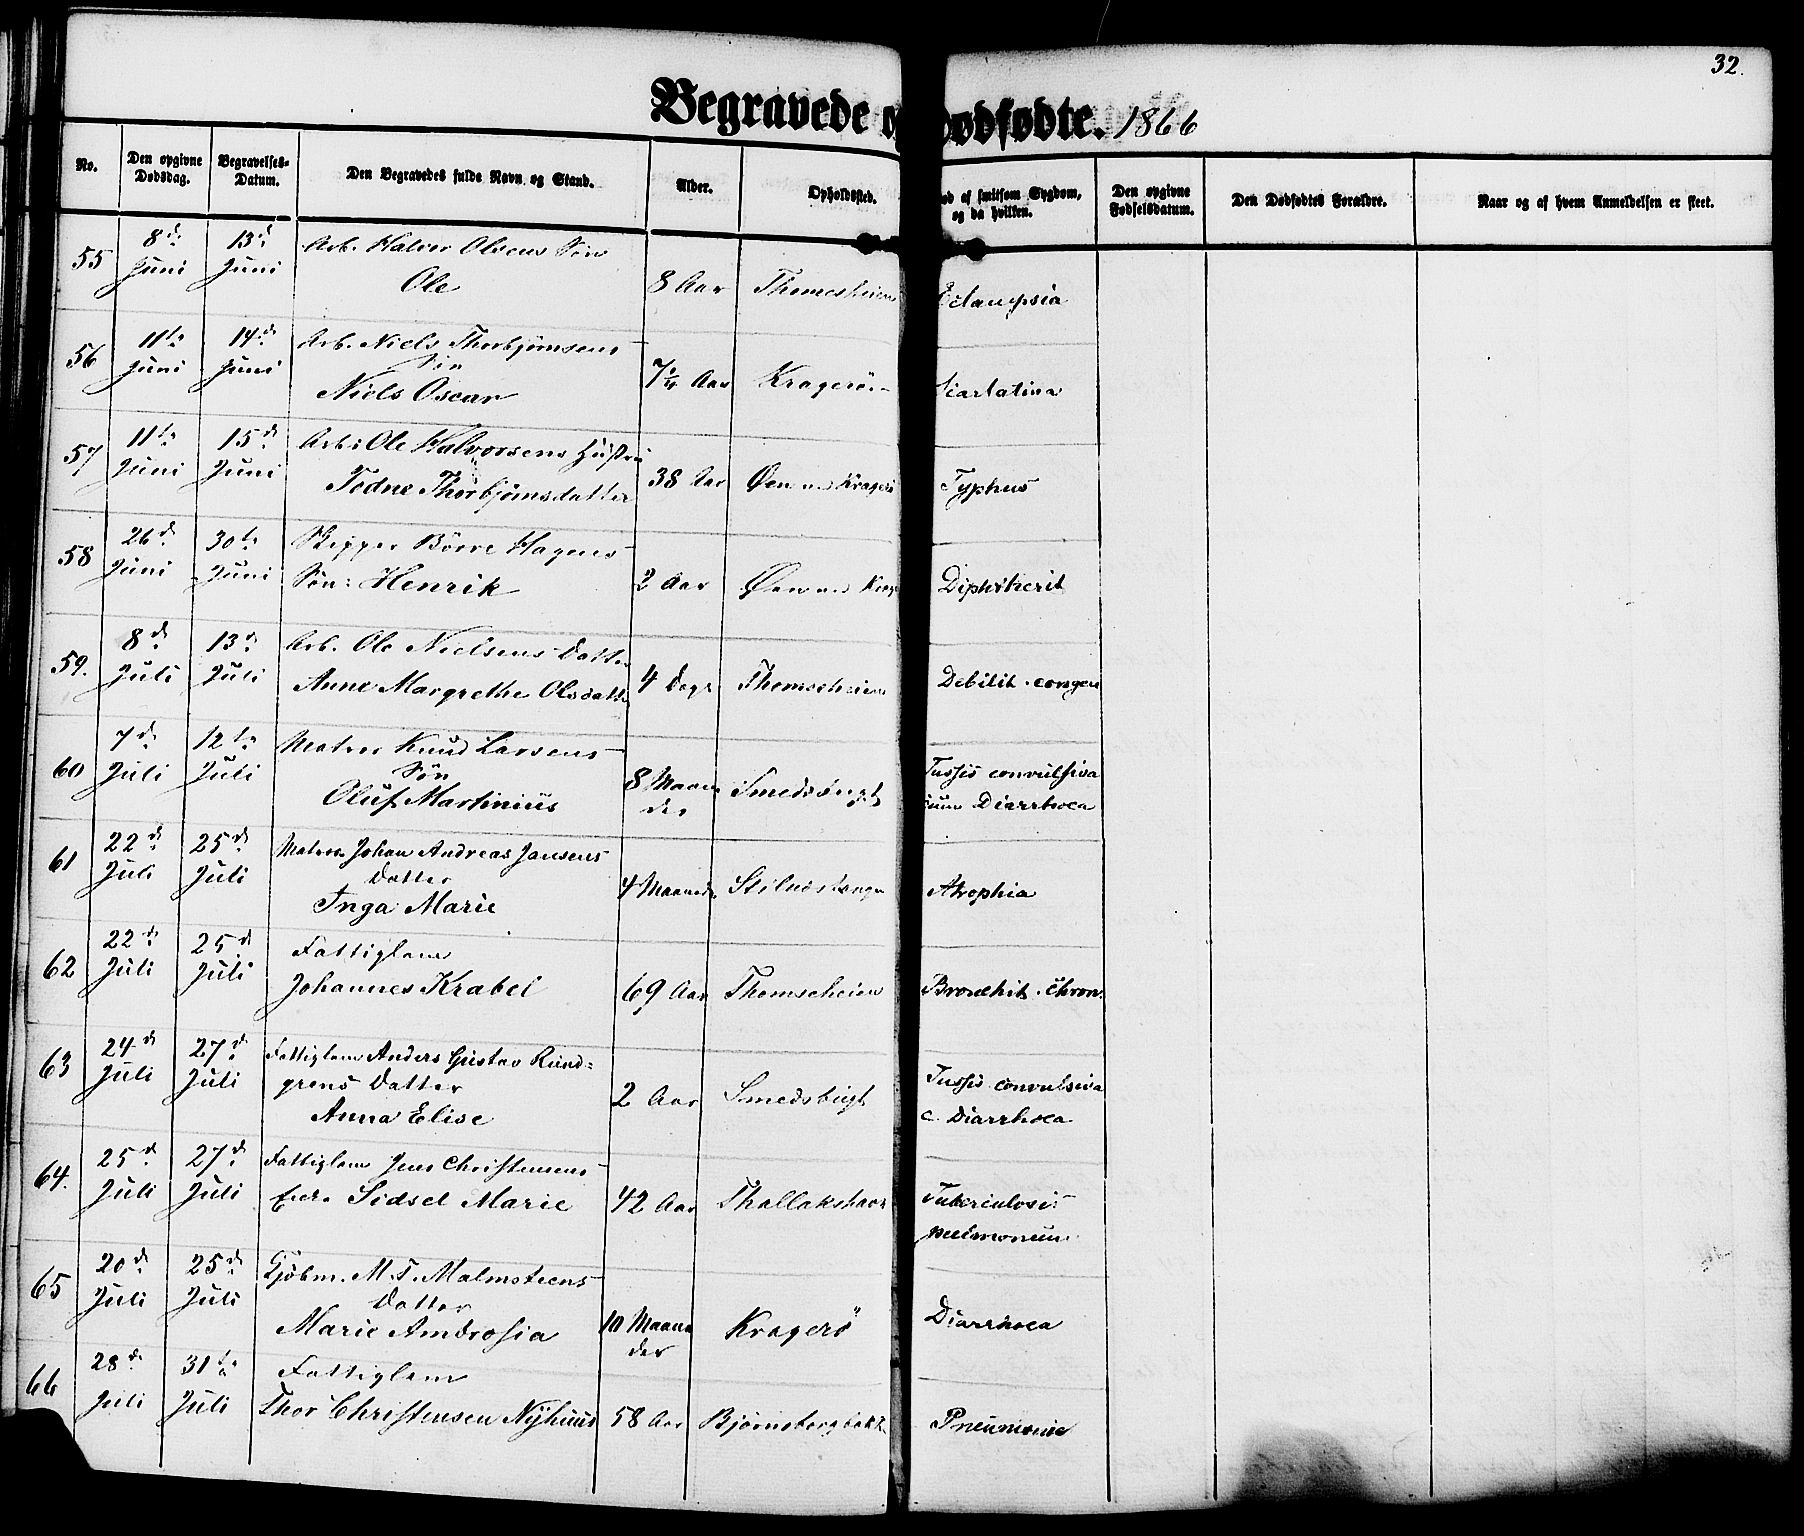 32.
Begravede o dødfødte. 1866
No.
Den opgivne Dødsdag.
Begravelses-Datum.
Den Begravedes fulde Navn og Stand.
Alder.
Opholdssted.
ød af smitsom Sygdom, og da hvilken.
Den opgivne Fødselsdatum.
Den Dødfødtes Forældre.
Naar og af hvem Anmeldelsen er skeet.
55 8de Juni 13de Juni Arb. Halvor Olsens Søn
Ole 8 Aar Thomesheien Eclampsia
56 11te Juni 14de Juni Arb. Niels Thorbjørnsens
Søn
Niels Oscar 7 1/4 Aar Kragerö carlatina
57 11te Juni 15de Juni Arb: Ole Halvorsens Hustru
Todne Thorbjørnsdatter 38 Aar Øen v. Kragerö Typhus
58 26de Juni 30te Juni Skipper Börre Hagens
Søn: Henrik 2 Aar Øen v. Krag Diphtherit
59. 8de Juli 13de Juli Arb. Ole Nielsens Datter
Anne Margrethe Olsdatte 4 Dage Thomseheien Debilit. congen
60 7de Juli 12te Juli Matros Knud Larsens
Søn
Oluf Martinius 8 Maane
der Smedsbugt Tussis convulsiva
cum Diarrhoea
61 22de Juli 25de Juli Matros Johan Andreas Jansens
Datter
Inga Marie 4 Maaneder Stilnestange Atrophia
62 22de Juli 25de Juli Fattiglem
Johannes Krabel 69 Aar Thomseheien Bronchit. chron.
63 24de Juli 27de Juli Fattiglem Anders Gustav Rund=
grens Datter
Anna Elise 2 Aar Smedsbugt Tussis convulsiva
c. Diarrhoea
64. 25de Juli 27de Juli Fattiglem Jens Christensens
Enke Sidsel Marie 42 Aar Thallakshavn Tuberculosis
pulmonum
65 20de Juli 25de Juli Kjøbm. M. T. Malmsteens
Datter
Marie Ambrosia 10 Maane
der Kragerö Diarrhoea
66 28de Juli 31te Juli Fattiglem
Thor Christensen Nyhuus 58 Aar Bjørnsbergbakke Pneumonie